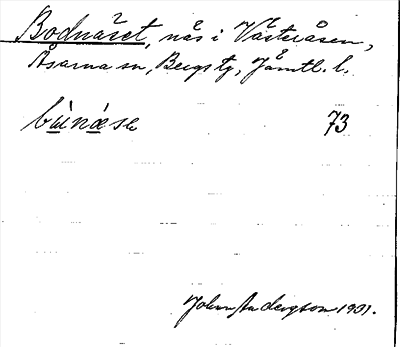 Bodnäset, näs i Västeråsen,
Åsarna sn, Bergs tg, Jämtl. l.
bùnǽse 73
John Andersson 1931.